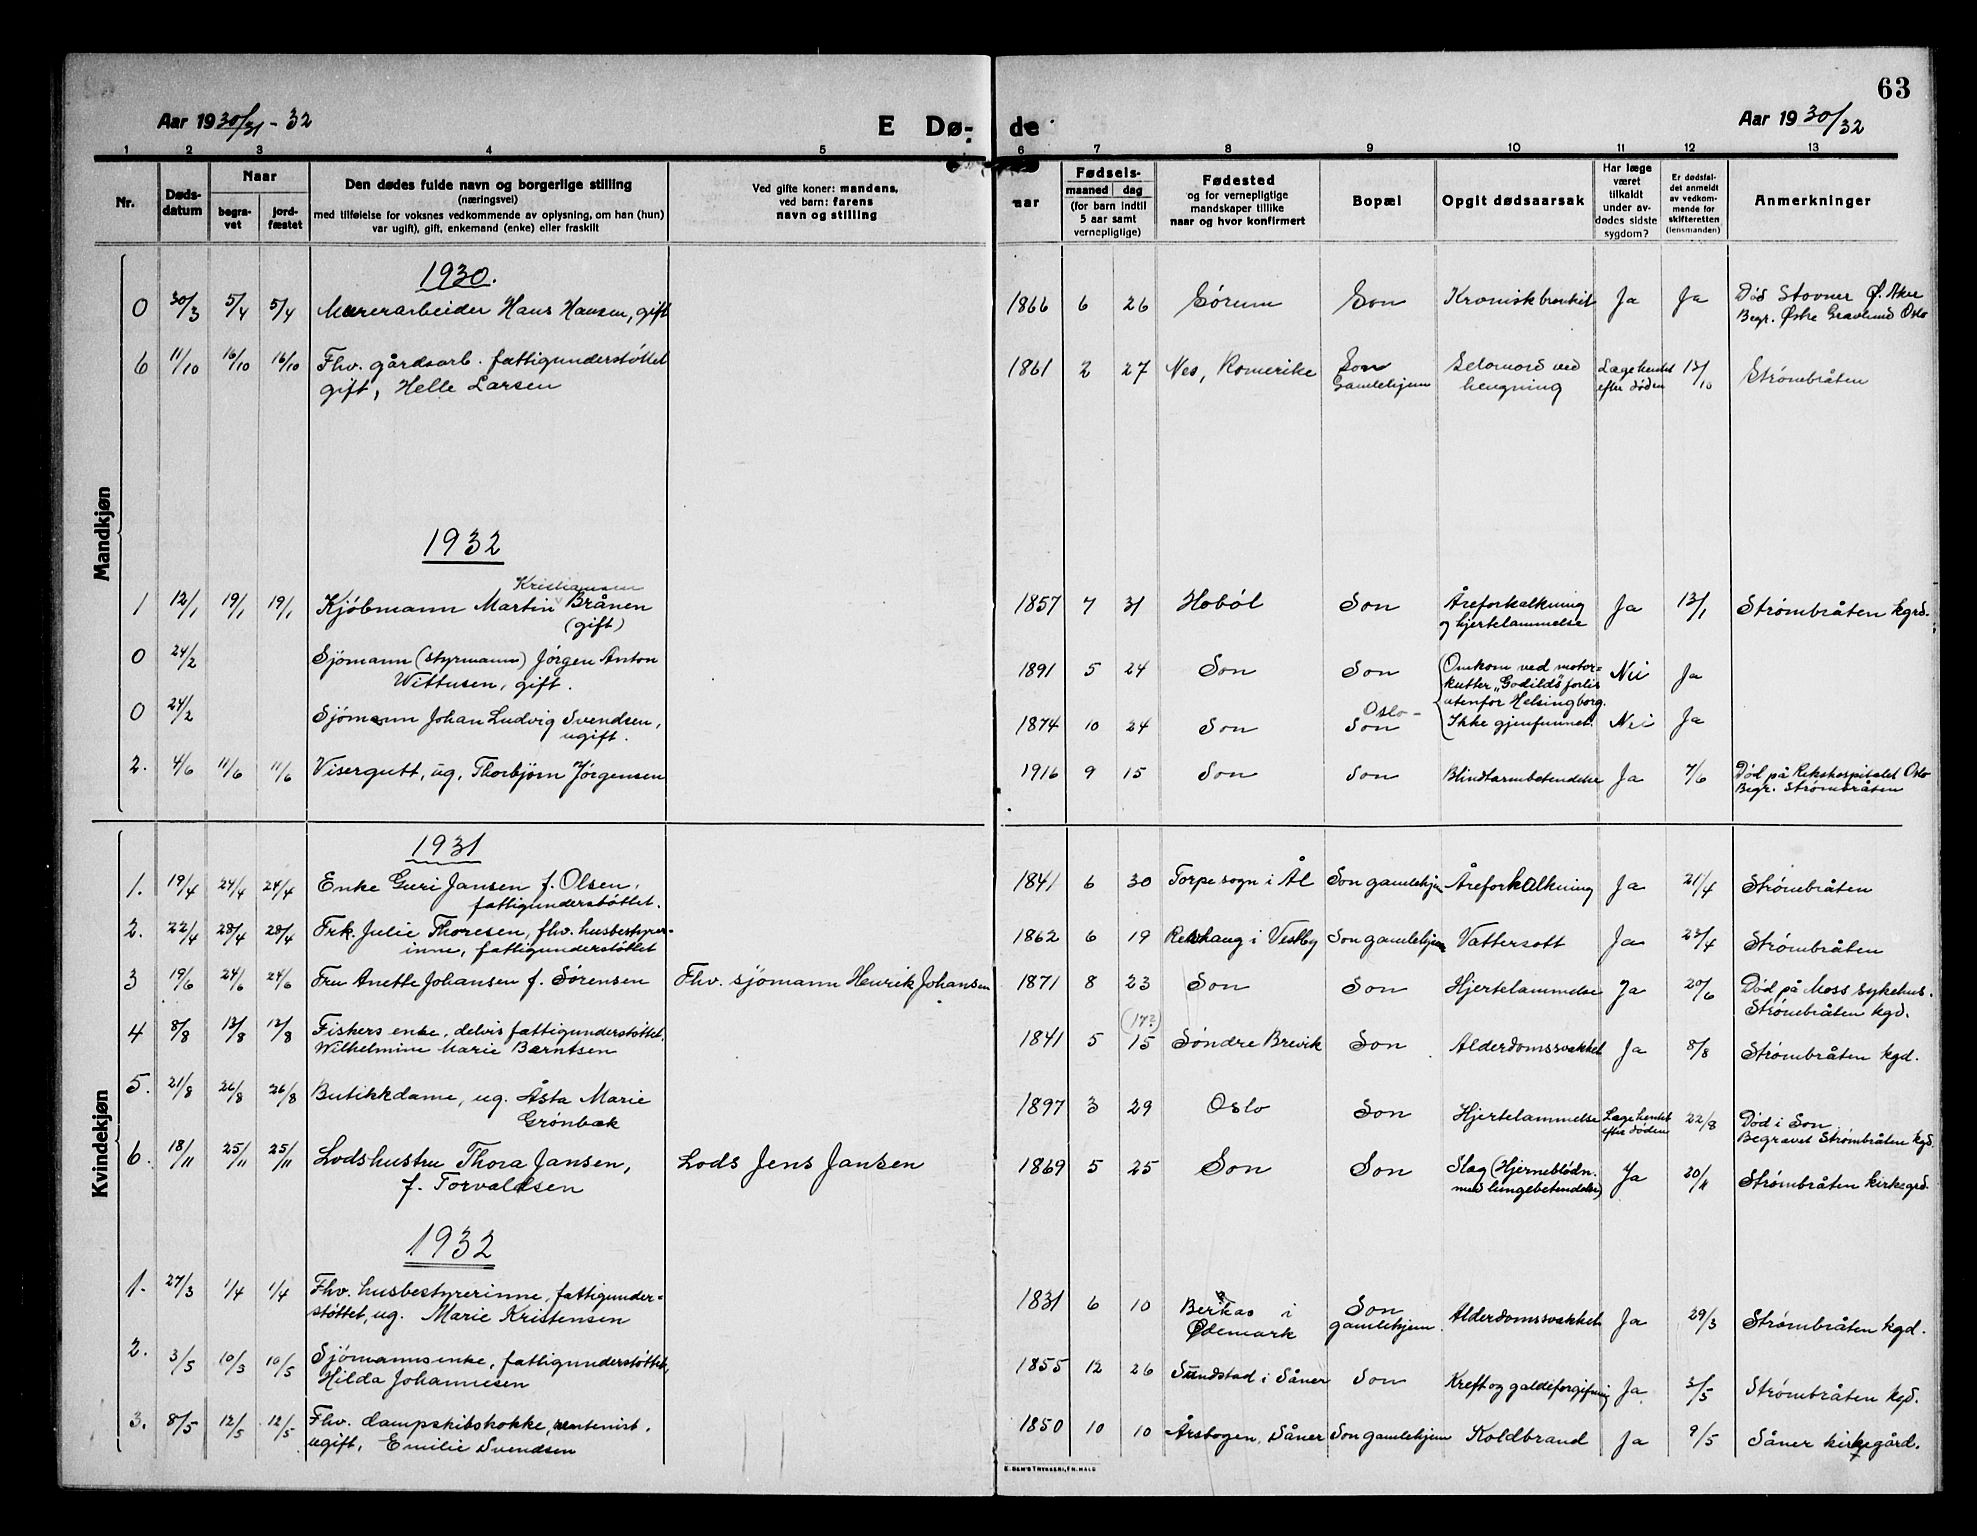 63
Aar 1930/31 - 32
E Dø-
de
Aar 1930/32
1 2 3 4 5 6 7 8 9 10 11 12 13
Nr.
Døds-
datum
Naar
begra-
vet
jord-
fæstet
Den dødes fulde navn og borgerlige stilling
(næringsvei)
med tilføielse for voksnes vedkommende av oplysning, om han (hun)
var ugift), gift, enkemand (enke) eller fraskilt
Ved gifte koner: mandens,
ved barn: farens
navn og stilling
aar
Fødsels-
maaned dag
(for barn indtil
5 aar samt
vernepligtige)
Fødested
og for vernepligtige
mandskaper tillike
naar og hvor konfirmert
Bopæl
Opgit dødsaarsak
Har læge
været
tilkaldt
under av-
dødes sidste
sygdom?
Er dødsfal-
det anmeldt
av vedkom-
mende for
skifteretten
(lensmanden)
Anmerkninger
Mandkjøn
1930.
0 30/3 5/4 5/4 Murerarbeider Hans Hansen, gift 1866 6 26 Sørum Son Kronisk bronkit Ja Ja Død Stovner Ø. Aker
Begr. Østre Gravlund Oslo
6 11/10 16/10 16/10 Fhv. gårdsarb. fattigunderstøttet 1861 2 27 Nes, Romerike Son Selvmord ved Læge hentet 13/10 Strømbråten
gift, Helle Larsen Gamlehjem hengning efter døden
1932
Kristiansen
1 12/1 19/1 19/1 Kjøbmann Martin Brånen 1857 7 31 Hobøl Son Åreforkalkning Ja 13/1 Strømbråten kgrd.
(gift) og hjertelammelse
0 24/2 Sjømann (styrmann) Jørgen Anton 1891 5 24 Son Son Omkom ved motor- Nei Ja
Wittusen, gift. kutter "Godild's" forlis
0 24/2 Sjømann Johan Ludvig Svendsen, 1874 10 24 Son Oslo - utenfor Helsingborg.
ugift. Son Ikke gjenfunnet. Nei Ja
2. 4/6 11/6 11/6 Visergutt, ug. Thorbjørn Jørgensen 1916 9 15 Son Son Blindtarmbetendelse Ja 7/6 Død på Rikshospitalet Oslo
Begr. Strømbråten
Kvindekjøn
1931
1. 19/4 24/4 24/4 Enke Guri Jansen f. Olsen, 1841 6 30 Torpe sogn i Ål Son gamlehjem Åreforkalkning Ja 21/4 Strømbråten
fattigunderstøttet.
2. 22/4 28/4 28/4 Frk. Julie Thoresen, fhv. husbestyrer- 1862 6 19 Revhaug i Vestby Son gamlehjem Vattersott Ja 23/4 Strømbråten
inne, fattigunderstøttet
3 19/6 24/6 24/6 Fru Anette Johansen f. Sørensen Fhv. sjømann Henrik Johansen 1871 8 23 Son Son Hjertelammelse Ja 20/6 Død på Moss sykehus.
Strømbråten kgd.
(17?)
4 8/8 13/8 13/8 Fiskers enke, delvis fattigunderstøttet, 1841 5 15 Søndre Brevik Son Alderdomssvakhet Ja 8/8 Strømbråten kgd.
Wilhelmine Marie Berntsen
5. 21/8 26/8 26/8 Butikkdame, ug. Åsta Marie 1897 3 29 Oslo Son Hjertelammelse Læge hentet 22/8 Død i Son
Grønbæk efter døden Begravet Strømbråten kgd.
6. 18/11 25/11 25/11 Lodshustru Thora Jansen, Lods Jens Jansen 1869 5 25 Son Son Slag (Hjerneblødn. Ja 20/11 Strømbråten kirkegrd.
f. Torvaldsen med lungebetendelse)
1932
1. 27/3 1/4 1/4 Fhv. husbestyrerinne, fattigunder- 1831 6 10 Berkas i Son Alderdomssvakhet Ja 29/3 Strømbråten kgd.
støttet, ug. Marie Kristensen Ødemark gamlehjem.
2. 3/5 10/3 10/5 Sjømannsenke, fattigunderstøttet, 1855 12 26 Sundstad i Såner Son Kreft og galdeforgiftning Ja 3/5 Strømbråten kgd.
Hilda Johannesen
3. 8/5 12/5 12/5 Fhv. dampskibskokke, rentenist, 1850 10 10 Årsbogen, Såner Son gamlehjem Koldbrand Ja 9/5 Såner kirkegård.
ugift, Emilie Svendsen
E. SEM'S TRYKKERI, FR.HALD